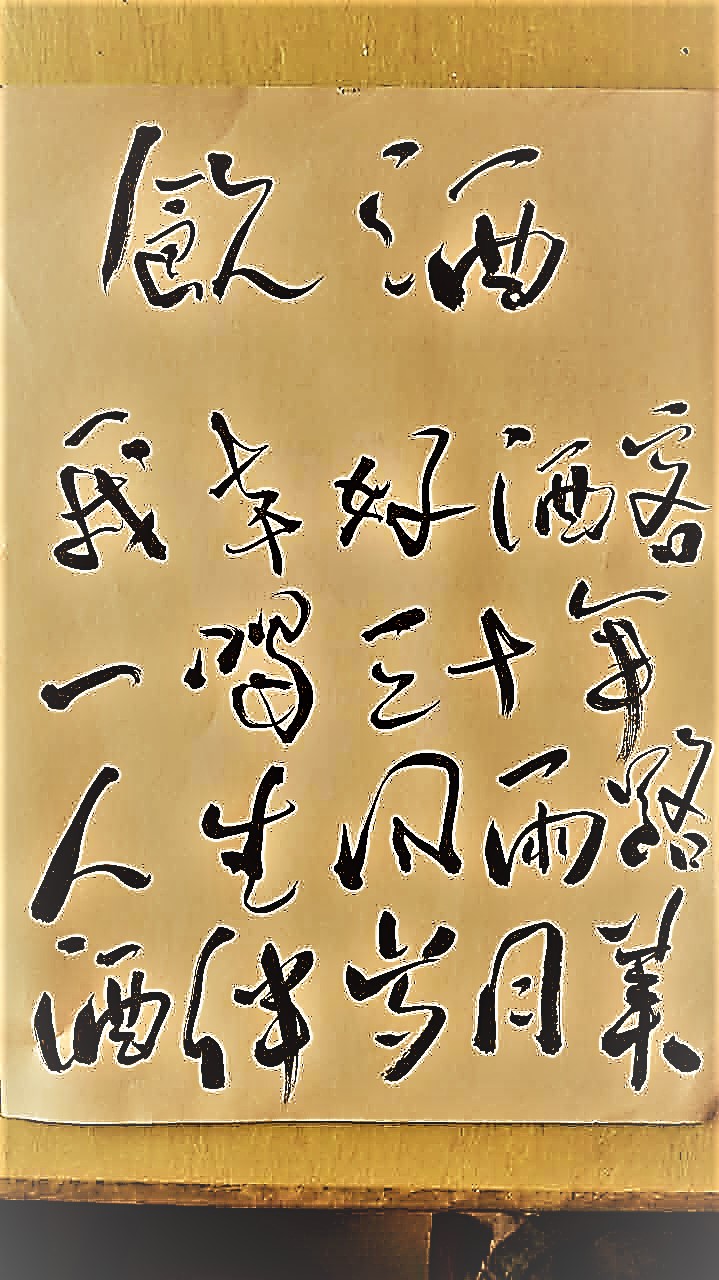 飲酒
我本好酒客
一喝三十年
人生風雨路
酒伴歲月業